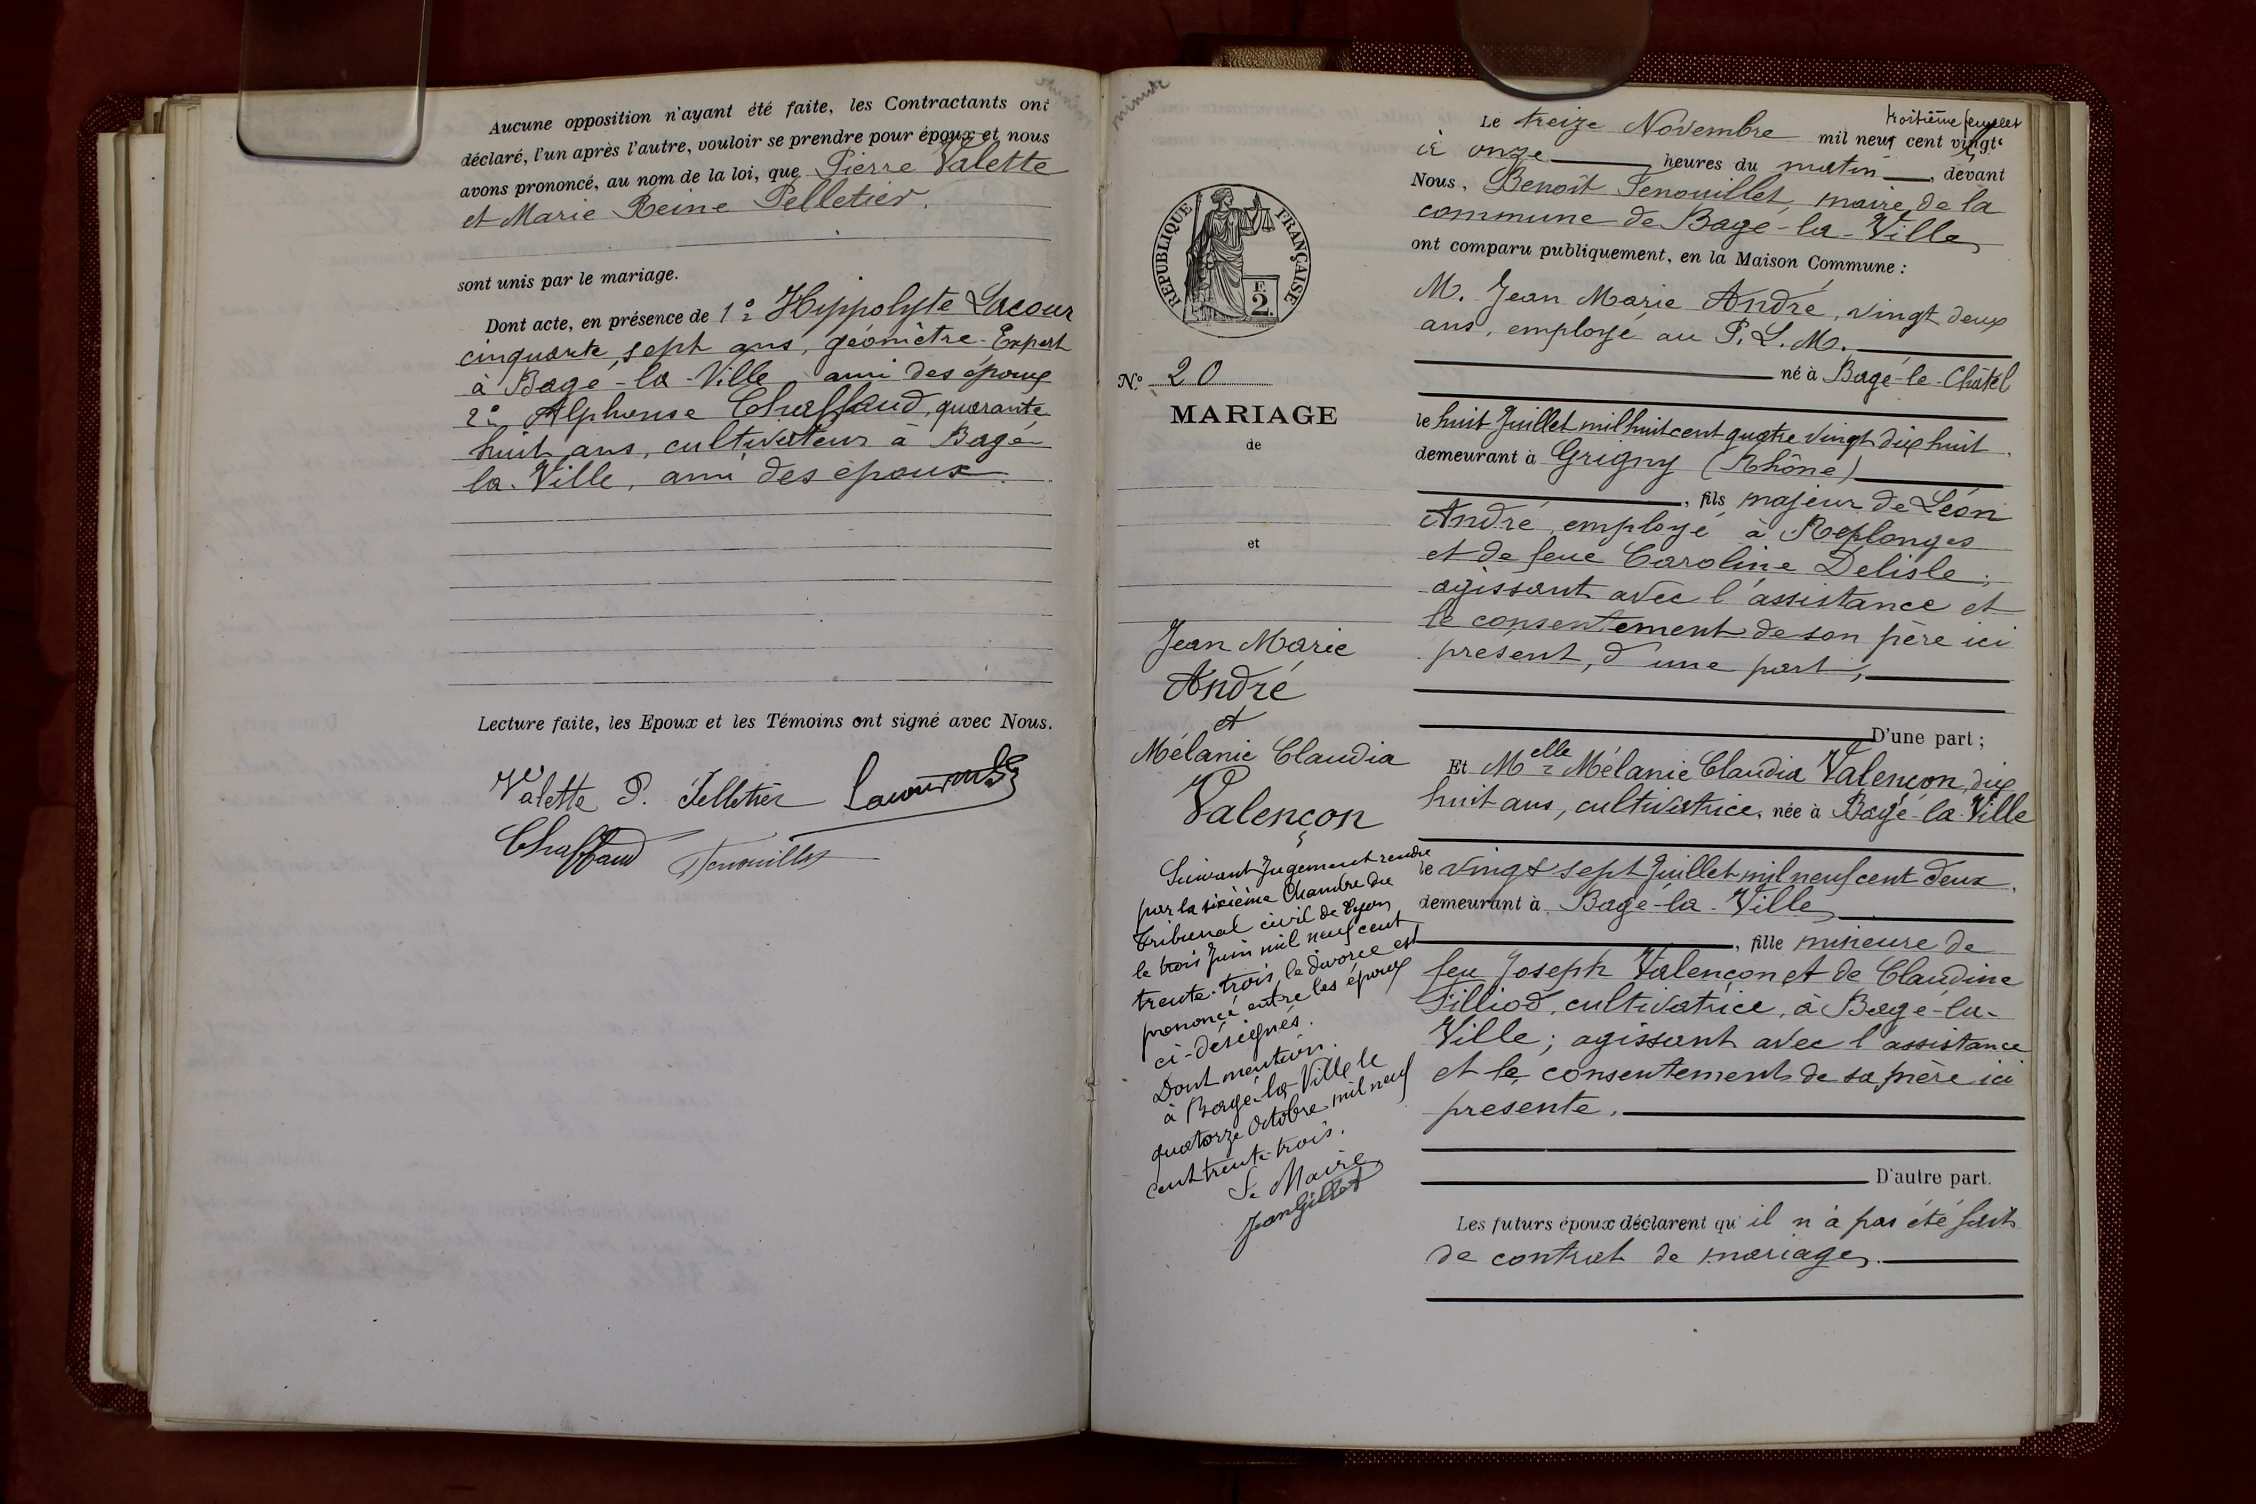 Aucune opposition n'ayant été faite, les Contractants ont
déclaré, l'un après l'autre, vouloir se prendre pour époux et nous
avons prononcé, au nom de la loi, que Pierre Valette
et Marie Reine Pelletier.
sont unis par le mariage.
Dont acte, en présence de 1° Hippolyte Lacour
cinquante sept ans, géomètre-Expert
à Bagé-la-Ville, ami des époux
2° Alphonse Chaffaud, quarante
huit ans, cultivateur à Bagé-
la-Ville, ami des époux.
Lecture faite, les Epoux et les Témoins ont signé avec Nous.
Valette P. Pelletier Lacour
Chaffaud Fenouillet
minute
RÉPUBLIQUE FRANÇAISE
F.
2.
N° 20
MARIAGE
de
et
Jean Marie
André
et
Mélanie Claudia
Valençon
Suivant Jugement rendu
par la sixième Chambre du
Tribunal civil de Lyon
le trois Juin mil neuf cent
trente-trois, le divorce est
prononcé entre les époux
ci-désignés.
Dont mention.
à Bagé-la-Ville le
quatorze Octobre mil neuf
cent trente-trois.
Le Maire,
Jean Gillet
troisième feuillet
Le treize Novembre mil neuf cent vingt
à onze heures du matin, devant
Nous, Benoît Fenouillet, maire de la
commune de Bagé-la-Ville
ont comparu publiquement, en la Maison Commune :
M. Jean Marie André, vingt deux
ans, employé au P. L. M.
né à Bagé-le-Châtel
le huit Juillet mil huit cent quatre vingt dix huit.
demeurant à Grigny (Rhône)
, fils majeur de Léon
André, employé à Replonges
et de feue Caroline Delisle;
agissant avec l'assistance et
le consentement de son père ici
présent, d'une part,
D'une part ;
Et Melle Mélanie Claudia Valençon, dix
huit ans, cultivatrice, née à Bagé-la-Ville
le vingt sept Juillet mil neuf cent deux,
demeurant à Bagé-la-Ville
, fille mineure de
feu Joseph Valençon et de Claudine
Tilliod, cultivatrice, à Bagé-la-
Ville; agissant avec l'assistance
et le consentement de sa mère ici
présente.
D'autre part.
Les futurs époux déclarent qu'il n'a pas été fait
de contrat de mariage.